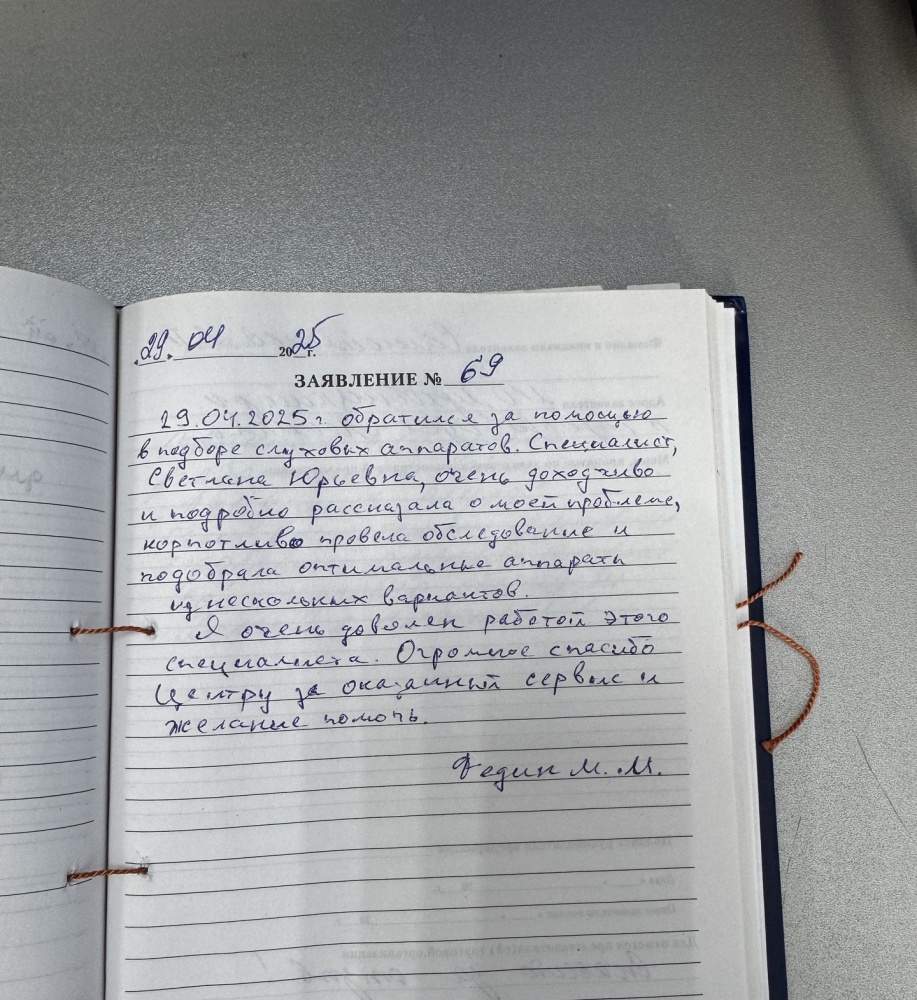 29. 04 2025 г.
ЗАЯВЛЕНИЕ № 69
29.04.2025 г. обратился за помощью
в подборе слуховых аппаратов. Специалист,
Светлана Юрьевна, очень доходчиво
и подробно рассказала о моей проблеме,
корпотливо провела обследование и
подобрала оптимальные аппараты
из нескольких вариантов.
Я очень доволен работой этого
специалиста. Огромное спасибо
Центру за оказанный сервис и
желание помочь.
Федин М. М.